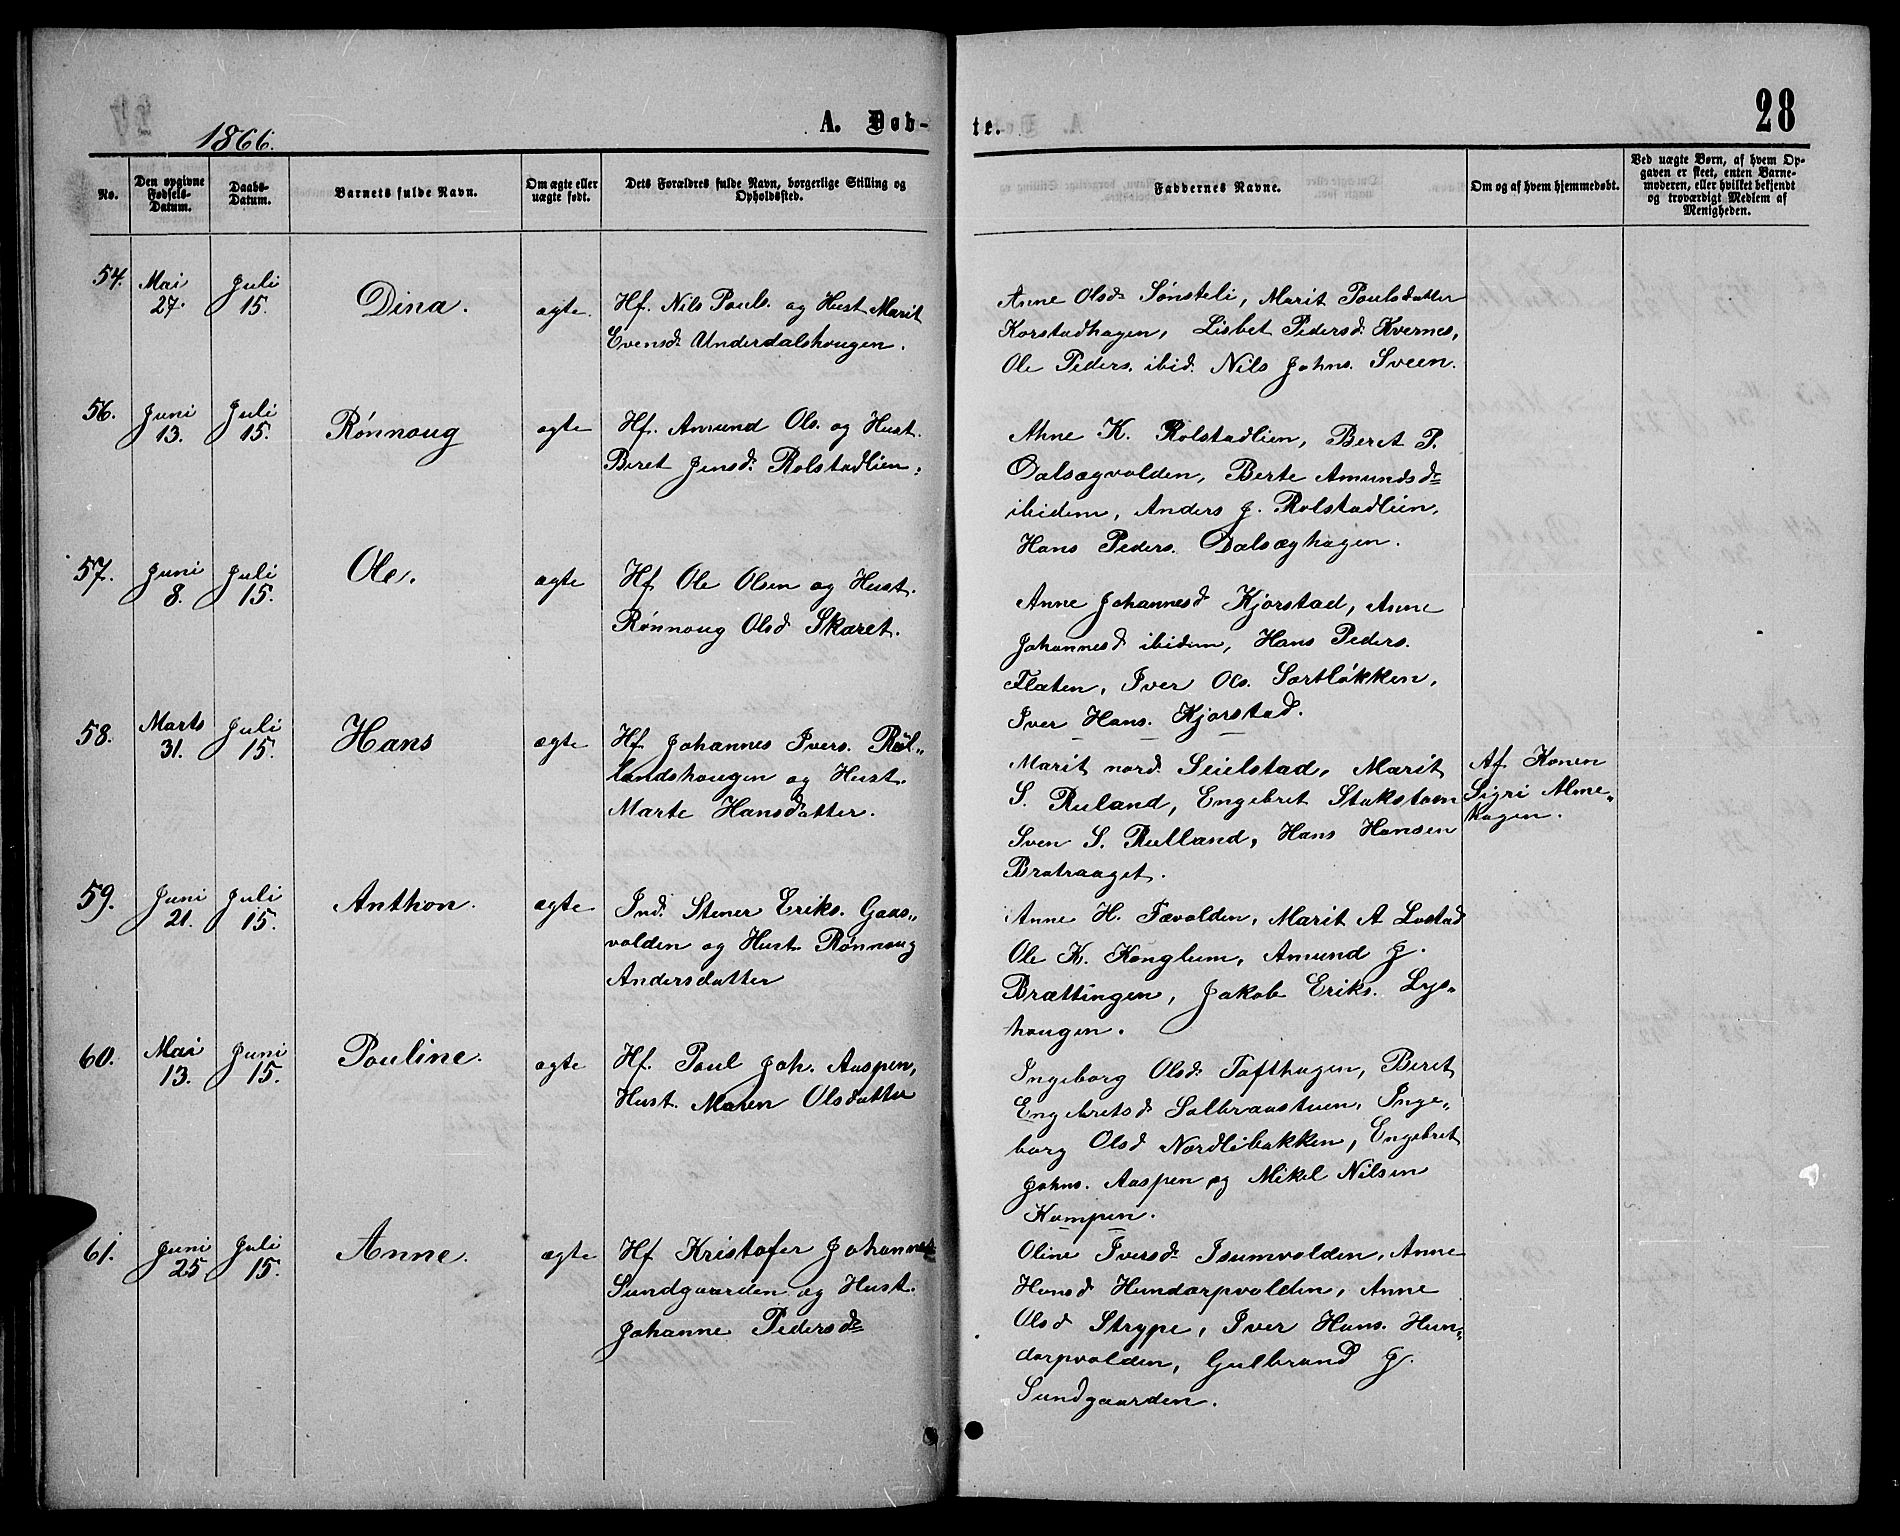 1866.
A. Døb-
te.
28
No.
Den opgivne Fødsels-Datum.
Daabs-Datum.
Barnets fulde Navn.
Om ægte eller uægte født.
Dets Forældres fulde Navn, borgerlige Stilling og Opholdssted.
Faddernes Navne.
Om og af hvem hjemmedøbt.
Ved uægte Børn, af hvem Op-
gaven er skeet, enten Barne-
moderen, eller hvilket bekjendt
og troværdigt Medlem af
Menigheden.
54. Mai 27. Juli 15. Dina. ægte.
Hf. Nils Pouls. og Hust Marit
Evensd. Underdalshougen.
Anne Olsd. Sønsteli, Marit Poulsdatter
Korstadhagen, Lisbet Pedersd. Kvernes,
Ole Peders. ibid. Nils Johns. Sveen.
56. Juni 13. Juli 15. Rønnoug ægte
Hf. Amund Ols. og Hust.
Beret Jensd. Rolstadlien.
Ahne K. Rolstadlien, Beret P.
Dalsægvolden, Berte Amundsd.
ibidem, Anders J. Rolstadlien,
Hans Peders. Dalsæghagen.
57. Juni 8. Juli 15. Ole. ægte
Hf Ole Olsen og Hust.
Rønnoug Olsd Skaret.
Anne Johannesd Kjorstad, Anne
Johannesd ibidem, Hans Peders.
Flaten, Iver Ols. Sortløkken,
Iver Hans. Kjorstad.
58. Marts 31. Juli 15. Hans ægte
Hf. Johannes Ivers. Rul-
landshougen og Hust.
Marte Hansdatter.
Marit nord. Seielstad, Marit
S. Ruland, Engebret Stakstoen
Sven S. Rulland, Hans Hansen
Bratraaget.
Af Konen
Sigri Alme-
hagen.
59. Juni 21. Juli 15. Anthon. ægte
Ind. Stener Eriks. Gaas-
volden og Hust. Rønnoug
Andersdatter
Anne H. Fævolden, Marit A Lostad
Ole K. Konglum, Amund J.
Brættingen, Jakob Eriks. Lys-
hougen.
60. Mai 13. Juni 15. Pouline. ægte
Hf. Poul Joh. Aaspen,
Hust. Maren Olsdatter
Ingeborg Olsd. Tofthagen, Beret
Engebretsd Solbraastuen, Inge-
borg Olsd Nordlibakken, Engebret
Johns. Aaspen og Mikel Nilsen
Kampen.
61. Juni 25 Juli 15. Anne. ægte
Hf Kristofer Johannes
Sundgaarden og Hust.
Johanne Pedersd.
Oline Iversd. Isumvolden, Anne
Hansd Hundorpvolden, Anne
Olsd Strype, Iver Hans. Hun-
dorpvolden, Gulbrand J.
Sundgaarden.